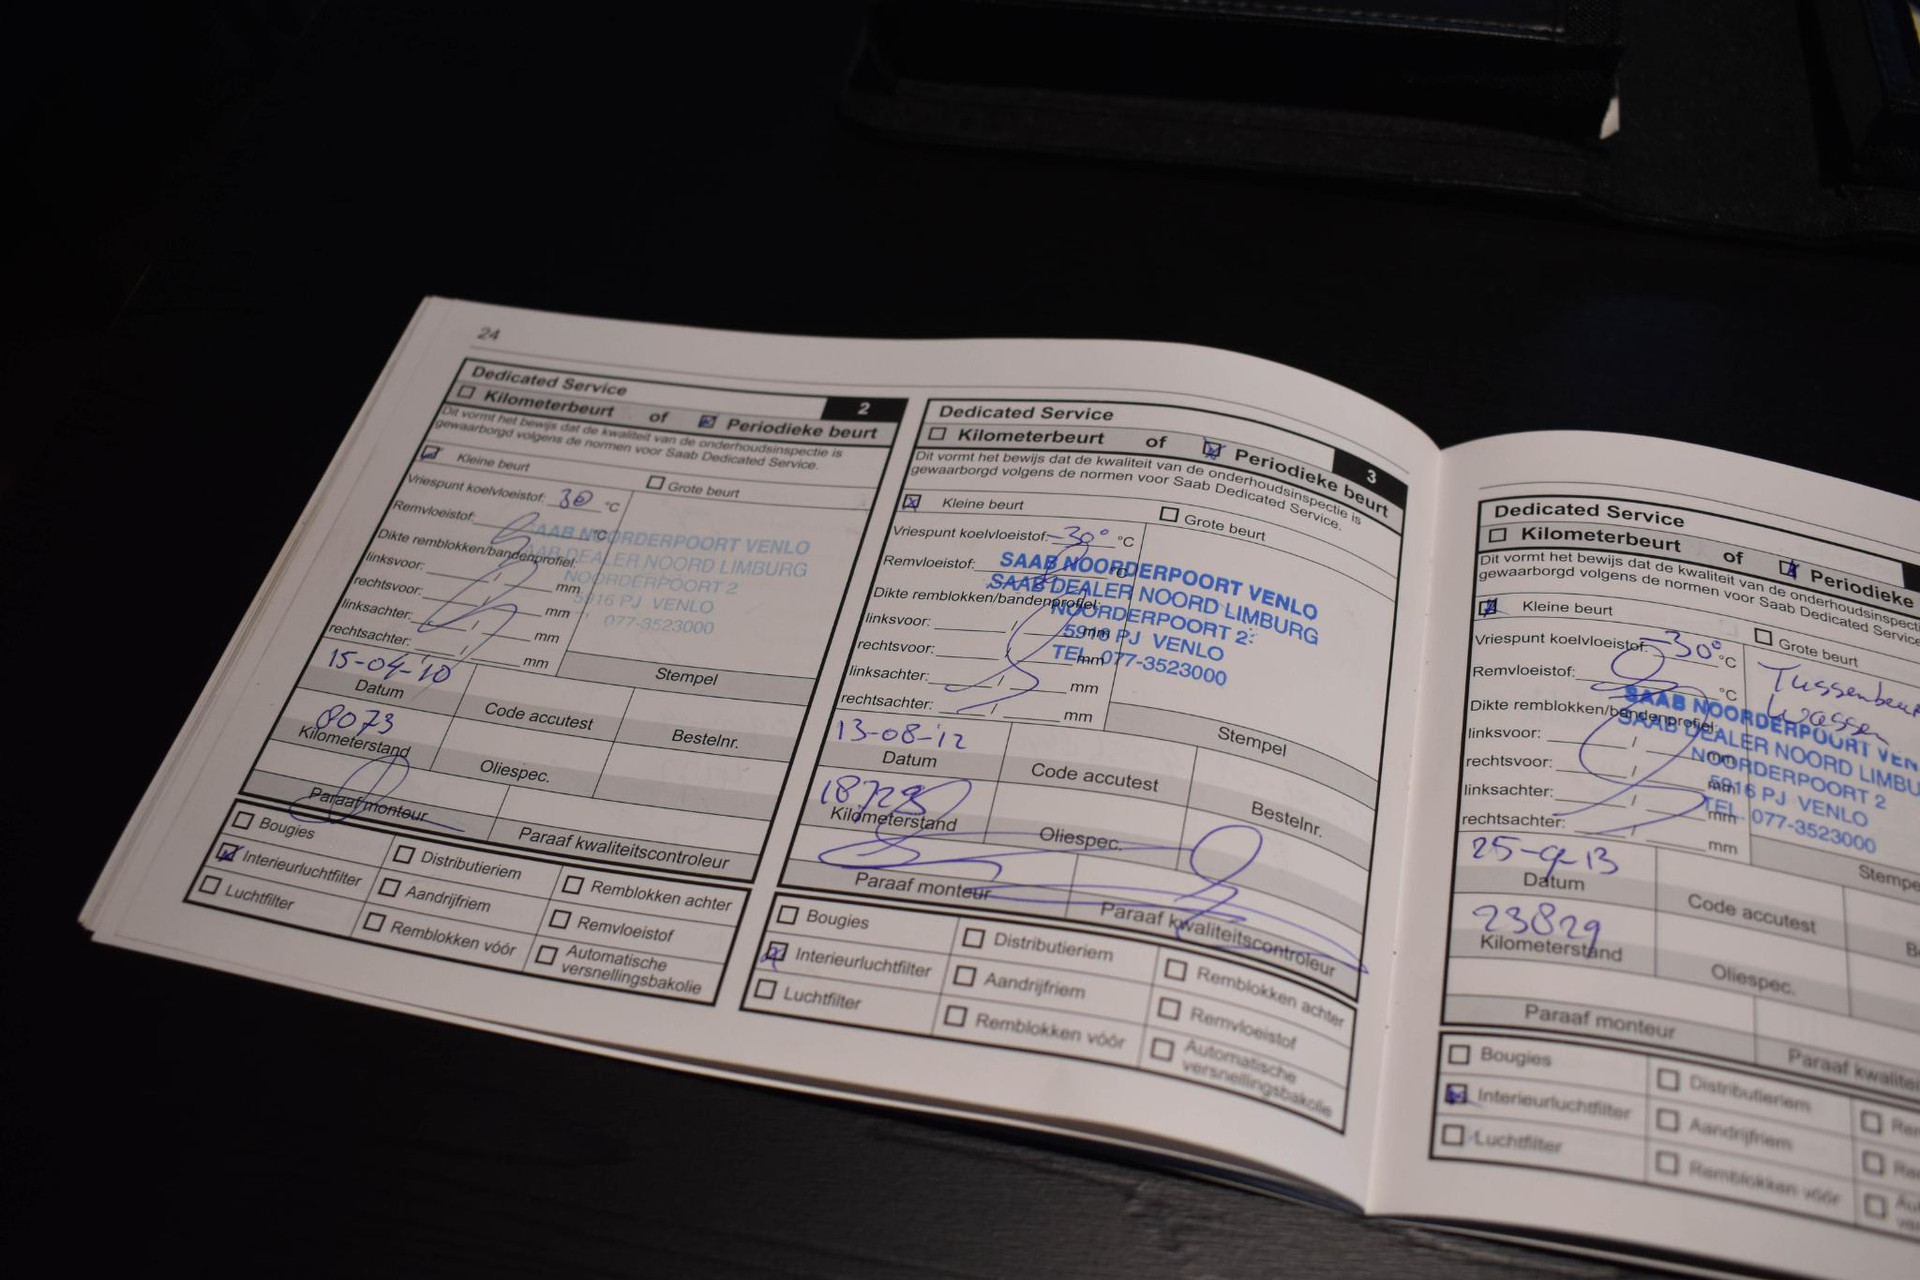 24
Dedicated Service
2
Kilometerbeurt of Periodieke beurt
Dit vormt het bewijs dat de kwaliteit van de onderhoudsinspectie is
gewaarborgd volgens de normen voor Saab Dedicated Service.
Kleine beurt
Grote beurt
Vriespunt koelvloeistof: 30 °C
Remvloeistof: °C
Dikte remblokken/bandenprofiel:
linksvoor: / mm
rechtsvoor: / mm
linksachter: / mm
rechtsachter: / mm
SAAB NOORDERPOORT VENLO
SAAB DEALER NOORD LIMBURG
NOORDERPOORT 2
5916 PJ VENLO
077-3523000
Stempel
15-04-'10
Datum
Code accutest
Bestelnr.
8073
Kilometerstand
Oliespec.
Paraaf monteur
Paraaf kwaliteitscontroleur
Bougies
Distributieriem
Remblokken achter
Interieurluchtfilter
Aandrijfriem
Remvloeistof
Luchtfilter
Remblokken vóór
Automatische
versnellingsbakolie
Dedicated Service
3
Kilometerbeurt of Periodieke beurt
Dit vormt het bewijs dat de kwaliteit van de onderhoudsinspectie is
gewaarborgd volgens de normen voor Saab Dedicated Service.
Kleine beurt
Grote beurt
Vriespunt koelvloeistof: -30° °C
Remvloeistof: °C
Dikte remblokken/bandenprofiel:
linksvoor: / mm
rechtsvoor: / mm
linksachter: / mm
rechtsachter: / mm
SAAB NOORDERPOORT VENLO
SAAB DEALER NOORD LIMBURG
NOORDERPOORT 2
5916 PJ VENLO
TEL. 077-3523000
Stempel
13-08-'12
Datum
Code accutest
Bestelnr.
Kilometerstand
Oliespec.
Paraaf monteur
Paraaf kwaliteitscontroleur
Bougies
Distributieriem
Remblokken achter
Interieurluchtfilter
Aandrijfriem
Remvloeistof
Luchtfilter
Remblokken vóór
Automatische
versnellingsbakolie
Dedicated Service
Kilometerbeurt of Periodieke
Dit vormt het bewijs dat de kwaliteit van de onderhoudsinspecti
gewaarborgd volgens de normen voor Saab Dedicated Service
Kleine beurt
Grote beurt
Vriespunt koelvloeistof: -30° °C
Remvloeistof: °C
Dikte remblokken/bandenprofiel:
linksvoor: / mm
rechtsvoor: / mm
linksachter: / mm
rechtsachter: / mm
Tussenbeurt
wassen
SAAB NOORDERPOORT VEN
SAAB DEALER NOORD LIMBU
NOORDERPOORT 2
5916 PJ VENLO
TEL. 077-3523000
Stempe
25-9-13
Datum
Code accutest
Be
23829
Kilometerstand
Oliespec.
Paraaf monteur
Paraaf kwalite
Bougies
Distributieriem
Rem
Interieurluchtfilter
Aandrijfriem
Rem
Luchtfilter
Remblokken vóór
Aut